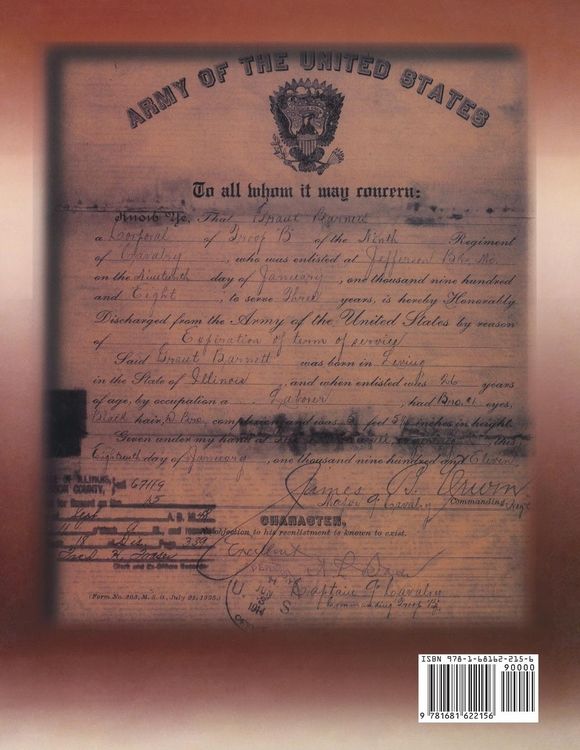 ARMY OF THE UNITED STATES
To all whom it may concern:
Know Ye, That Grant Barnett
a Corporal of Troop B of the Ninth Regiment
of Cavalry, who was enlisted at Jefferson Bks, Mo.
on the Nineteenth day of January, one thousand nine hundred
and Eight, to serve Three years, is hereby Honorably
Discharged from the Army of the United States by reason
of Expiration of term of service
Said Grant Barnett was born in
in the State of Illinois, and when enlisted was 26 years
of age, by occupation a Laborer, had Bro. eyes,
Black hair, complexion, and was 5 feet inches in height.
Given under my hand at this
Eighteenth day of January, one thousand nine hundred and Eleven
James
Major 9 Cavalry
Commanding
OF ILLINOIS,
COUNTY, 67119
for Record on the
15
A. D.
and
18 Page 339
Fred K.
Clerk and Ex-Officio Recorder
CHARACTER,
objection to his reenlistment is known to exist.
Excellent
Captain 9 Cavalry
Commanding Troop B
U. S.
1911
(Form No.
ISBN 978-1-68162-215-6
90000
9 781681 622156